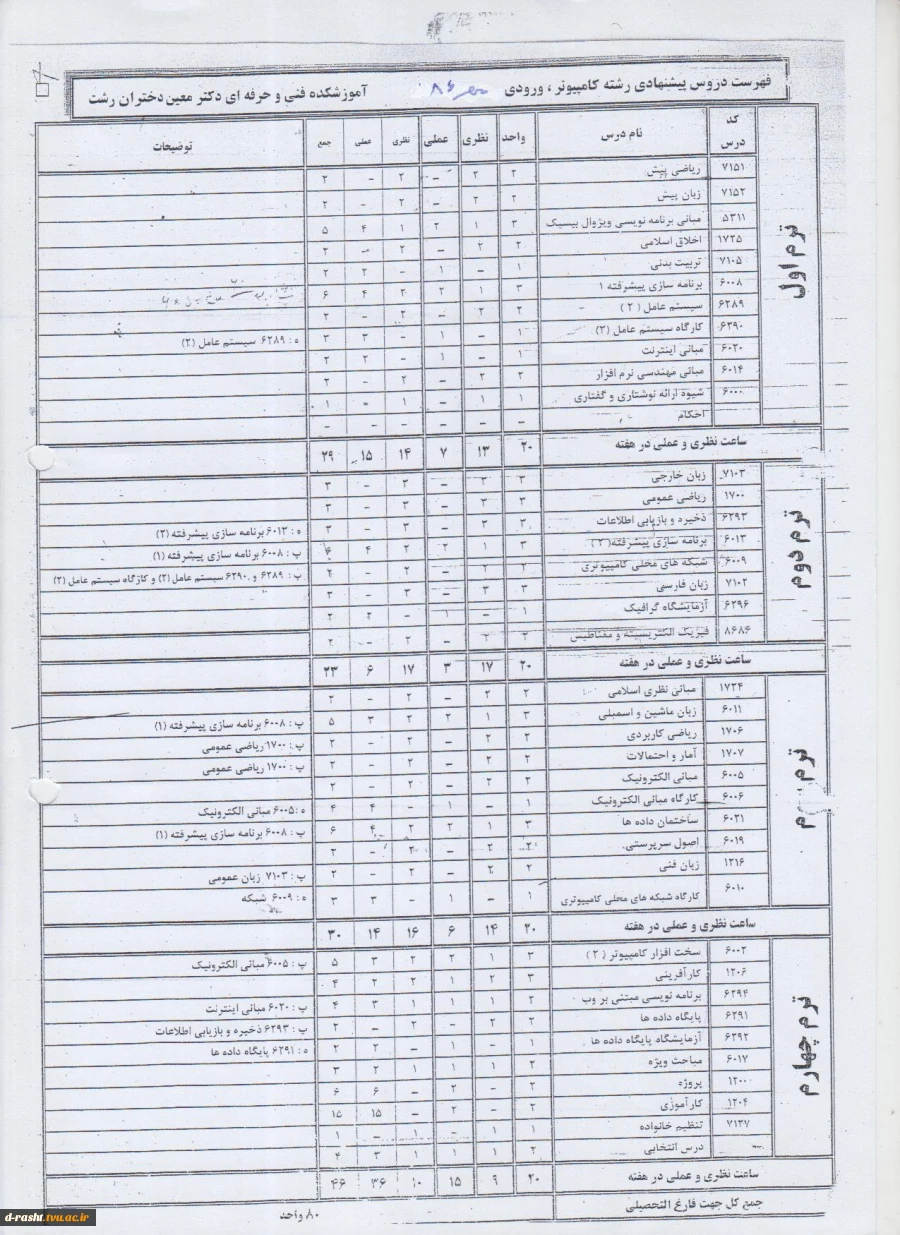 فهرست دروس پیشنهادی رشته کامپیوتر ، ورودی مهر ۸۶ آموزشکده فنی و حرفه ای دکتر معین دختران رشت
کد درس نام درس واحد نظری عملی نظری عملی جمع توضیحات
ترم اول
۷۱۵۱ ریاضی پیش ۲ ۲ – ۲ – ۲
۷۱۵۲ زبان پیش ۲ ۲ – ۲ – ۲
۵۳۱۱ مبانی برنامه نویسی ویژوال بیسیک ۳ ۱ ۲ ۱ ۴ ۵
۱۷۲۵ اخلاق اسلامی ۲ ۲ – ۲ – ۲
۷۱۰۵ تربیت بدنی ۱ – ۱ – ۲ ۲
۶۰۰۸ برنامه سازی پیشرفته ۱ ۳ ۱ ۲ ۲ ۴ ۶
۶۲۸۹ سیستم عامل (۲) ۲ ۲ – ۲ – ۲
۶۲۹۰ کارگاه سیستم عامل (۲) ۱ – ۱ – ۳ ۳ ه : ۶۲۸۹ سیستم عامل (۲)
۶۰۲۰ مبانی اینترنت ۱ – ۱ – ۲ ۲
۶۰۱۴ مبانی مهندسی نرم افزار ۲ ۲ – ۲ – ۲
۶۰۰۰ شیوه ارائه نوشتاری و گفتاری ۱ ۱ – ۱ – ۱
احکام – – – – – –
ساعت نظری و عملی در هفته ۲۰ ۱۳ ۷ ۱۴ ۱۵ ۲۹
ترم دوم
۷۱۰۳ زبان خارجی ۳ ۳ – ۳ – ۳
۱۷۰۰ ریاضی عمومی ۳ ۳ – ۳ – ۳
۶۲۹۳ ذخیره و بازیابی اطلاعات ۳ ۳ – ۳ – ۳ ه : ۶۰۱۳ برنامه سازی پیشرفته (۲)
۶۰۱۳ برنامه سازی پیشرفته (۲) ۳ ۱ ۲ ۲ ۴ ۶ پ : ۶۰۰۸ برنامه سازی پیشرفته (۱)
۶۰۰۹ شبکه های محلی کامپیوتری ۲ ۲ – ۲ – ۲ پ : ۶۲۸۹ و ۶۲۹۰ سیستم عامل (۲) و کارگاه سیستم عامل (۲)
۷۱۰۲ زبان فارسی ۳ ۳ – ۳ – ۳
۶۲۹۶ آزمایشگاه گرافیک ۱ – ۱ – ۲ ۲
۸۶۸۶ فیزیک الکتریسیته و مغناطیس ۲ ۲ – ۲ – ۲
ساعت نظری و عملی در هفته ۲۰ ۱۷ ۳ ۱۷ ۶ ۲۳
۱۷۲۴ مبانی نظری اسلامی ۲ ۲ – ۲ – ۲
۶۰۱۱ زبان ماشین و اسمبلی ۳ ۱ ۲ ۲ ۳ ۵ پ : ۶۰۰۸ برنامه سازی پیشرفته (۱)
۱۷۰۶ ریاضی کاربردی ۲ ۲ – ۲ – ۲ پ : ۱۷۰۰ ریاضی عمومی
۱۷۰۷ آمار و احتمالات ۲ ۲ – ۲ – ۲ پ : ۱۷۰۰ ریاضی عمومی
۶۰۰۵ مبانی الکترونیک ۲ ۲ – ۲ – ۲
۶۰۰۶ کارگاه مبانی الکترونیک ۱ – ۱ – ۴ ۴ ه : ۶۰۰۵ مبانی الکترونیک
۶۰۲۱ ساختمان داده ها ۳ ۱ ۲ ۲ ۴ ۶ پ : ۶۰۰۸ برنامه سازی پیشرفته (۱)
۶۰۱۹ اصول سرپرستی ۲ ۲ – ۲ – ۲
۱۲۱۶ زبان فنی ۲ ۲ – ۲ – ۲ پ : ۷۱۰۳ زبان عمومی
۶۰۱۰ کارگاه شبکه های محلی کامپیوتری ۱ – ۱ – ۳ ۳ ه : ۶۰۰۹ شبکه
ساعت نظری و عملی در هفته ۲۰ ۱۴ ۶ ۱۶ ۱۴ ۳۰
ترم چهارم
۶۰۰۲ سخت افزار کامپیوتر (۲) ۳ ۱ ۲ ۲ ۳ ۵ پ : ۶۰۰۵ مبانی الکترونیک
۱۲۰۶ کارآفرینی ۳ ۲ ۱ ۲ ۲ ۴
۶۲۹۴ برنامه نویسی مبتنی بر وب ۲ ۱ ۱ ۱ ۳ ۴ پ : ۶۰۲۰ مبانی اینترنت
۶۲۹۱ پایگاه داده ها ۲ ۲ – ۲ – ۲ پ : ۶۲۹۳ ذخیره و بازیابی اطلاعات
۶۲۹۲ آزمایشگاه پایگاه داده ها ۱ – ۱ – ۲ ۲ ه : ۶۲۹۱ پایگاه داده ها
۶۰۱۷ مباحث ویژه ۲ ۱ ۱ ۱ ۲ ۳
۱۲۰۰ پروژه ۲ – ۲ – ۶ ۶
۱۲۰۴ کارآموزی ۲ – ۲ – ۱۵ ۱۵
۷۱۲۷ تنظیم خانواده ۱ ۱ – ۱ – ۱
– درس انتخابی ۲ ۱ ۱ ۱ ۳ ۴
ساعت نظری و عملی در هفته ۲۰ ۹ ۱۵ ۱۰ ۳۶ ۴۶
جمع کل جهت فارغ التحصیلی ۸۰ واحد
d-rasht.tvu.ac.ir